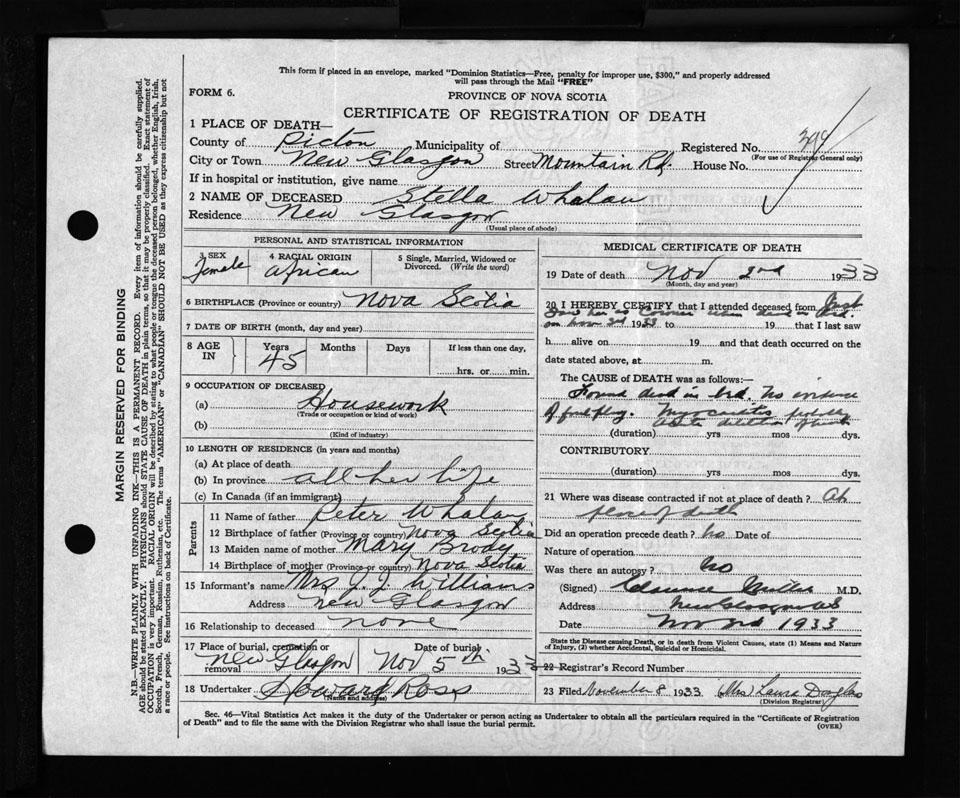 This form if placed in an envelope, marked "Dominion Statistics—Free, penalty for improper use, $300," and properly addressed
will pass through the Mail "FREE"
FORM 6.
PROVINCE OF NOVA SCOTIA
CERTIFICATE OF REGISTRATION OF DEATH
1 PLACE OF DEATH—
County of Pictou Municipality of Registered No. 394
(For use of Registrar General only)
City or Town New Glasgow Street Mountain Rd. House No.
If in hospital or institution, give name
2 NAME OF DECEASED Stella Whalan
Residence New Glasgow
(Usual place of abode)
PERSONAL AND STATISTICAL INFORMATION
3 SEX 4 RACIAL ORIGIN 5 Single, Married, Widowed or
Female African Divorced. (Write the word)
6 BIRTHPLACE (Province or country) Nova Scotia
7 DATE OF BIRTH (month, day and year)
8 AGE IN Years Months Days If less than one day,
45 hrs. or min.
9 OCCUPATION OF DECEASED
(a) Housework
(Trade or occupation or kind of work)
(b)
(Kind of industry)
10 LENGTH OF RESIDENCE (in years and months)
(a) At place of death
(b) In province all her life
(c) In Canada (if an immigrant)
Parents
11 Name of father Peter Whalan
12 Birthplace of father (Province or country) Nova Scotia
13 Maiden name of mother Mary Brody
14 Birthplace of mother (Province or country) Nova Scotia
15 Informant's name Mrs J. J. Williams
Address New Glasgow
16 Relationship to deceased none
17 Place of burial, cremation or Date of burial
removal New Glasgow Nov 5th 1933
18 Undertaker Howard Ross
(Name and address)
MEDICAL CERTIFICATE OF DEATH
19 Date of death Nov 2nd 1933
(Month, day and year)
20 I HEREBY CERTIFY that I attended deceased from Just
saw her as Coroner dead in bed
on Nov 3rd 1933 to 19 that I last saw
h alive on 19 and that death occurred on the
date stated above, at m.
The CAUSE of DEATH was as follows:—
Found dead in bed. No evidence
of foul play. Myocarditis probably
acute dilation of heart
(duration) yrs mos dys.
CONTRIBUTORY
(duration) yrs. mos. dys.
21 Where was disease contracted if not at place of death? At
place of death
Did an operation precede death? No Date of
Nature of operation
Was there an autopsy? No
(Signed) Clarence Miller M.D.
Address New Glasgow N.S.
Date Nov 1933
State the Disease causing Death, or in death from Violent Causes, state (1) Means and Nature
of Injury, (2) whether Accidental, Suicidal or Homicidal.
22 Registrar's Record Number
23 Filed November 8 1933 (Mrs) Laura Douglas
(Division Registrar)
Sec. 46—Vital Statistics Act makes it the duty of the Undertaker or person acting as Undertaker to obtain all the particulars required in the "Certificate of Registration
of Death" and to file the same with the Division Registrar who shall issue the burial permit.
(OVER)
MARGIN RESERVED FOR BINDING
N.B.—WRITE PLAINLY WITH UNFADING INK—THIS IS A PERMANENT RECORD. Every item of information should be carefully supplied.
AGE should be stated EXACTLY. PHYSICIANS should STATE CAUSE OF DEATH in plain terms, so that it may be properly classified. Exact statement of
OCCUPATION is very important. RACIAL ORIGIN will be described by stating to what people or tongue the deceased person belonged, whether English, Irish,
Scotch, French, German, Russian, Ruthenian, etc. The terms "AMERICAN" or "CANADIAN" SHOULD NOT BE USED as they express citizenship but not
a race or people. See instructions on back of Certificate.